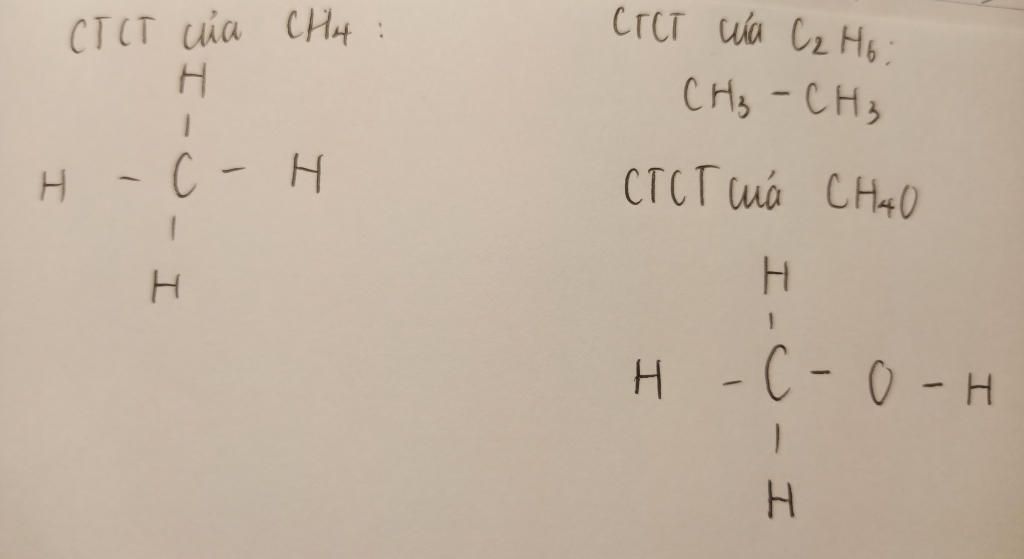 CTCT của CH₄ :
H
|
H - C - H
|
H
CTCT của C₂H₆:
CH₃ - CH₃
CTCT của CH₄O
H
|
H - C - O - H
|
H